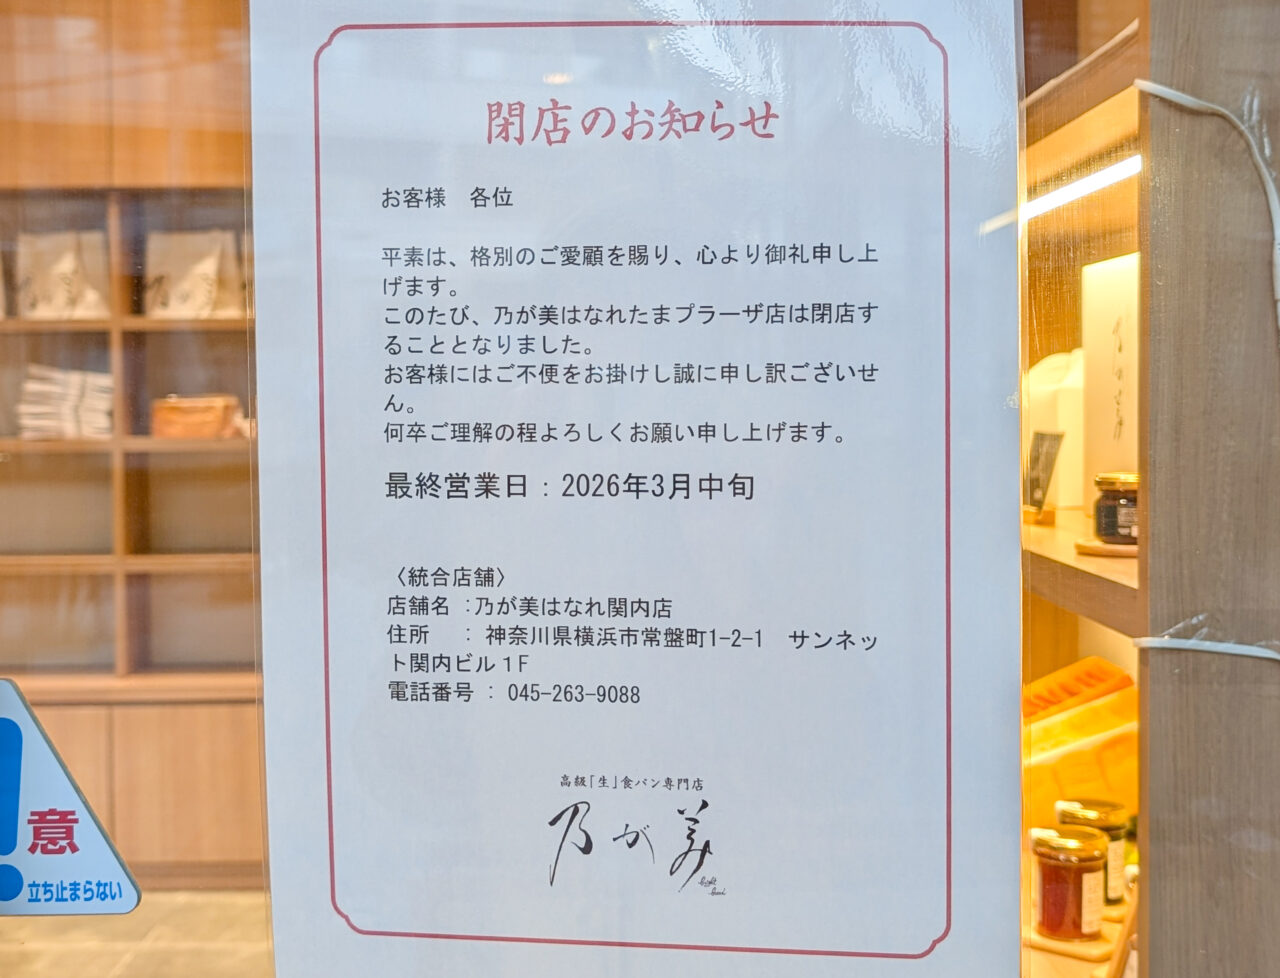 閉店のお知らせ
お客様　各位
平素は、格別のご愛顧を賜り、心より御礼申し上
げます。
このたび、乃が美はなれたまプラーザ店は閉店す
ることとなりました。
お客様にはご不便をお掛けし誠に申し訳ございせ
ん。
何卒ご理解の程よろしくお願い申し上げます。
最終営業日：2026年3月中旬
〈統合店舗〉
店舗名 ：乃が美はなれ関内店
住所　 ： 神奈川県横浜市常盤町1-2-1　サンネッ
ト関内ビル１F
電話番号 ： 045-263-9088
高級「生」食パン専門店
乃が美
意
立ち止まらない